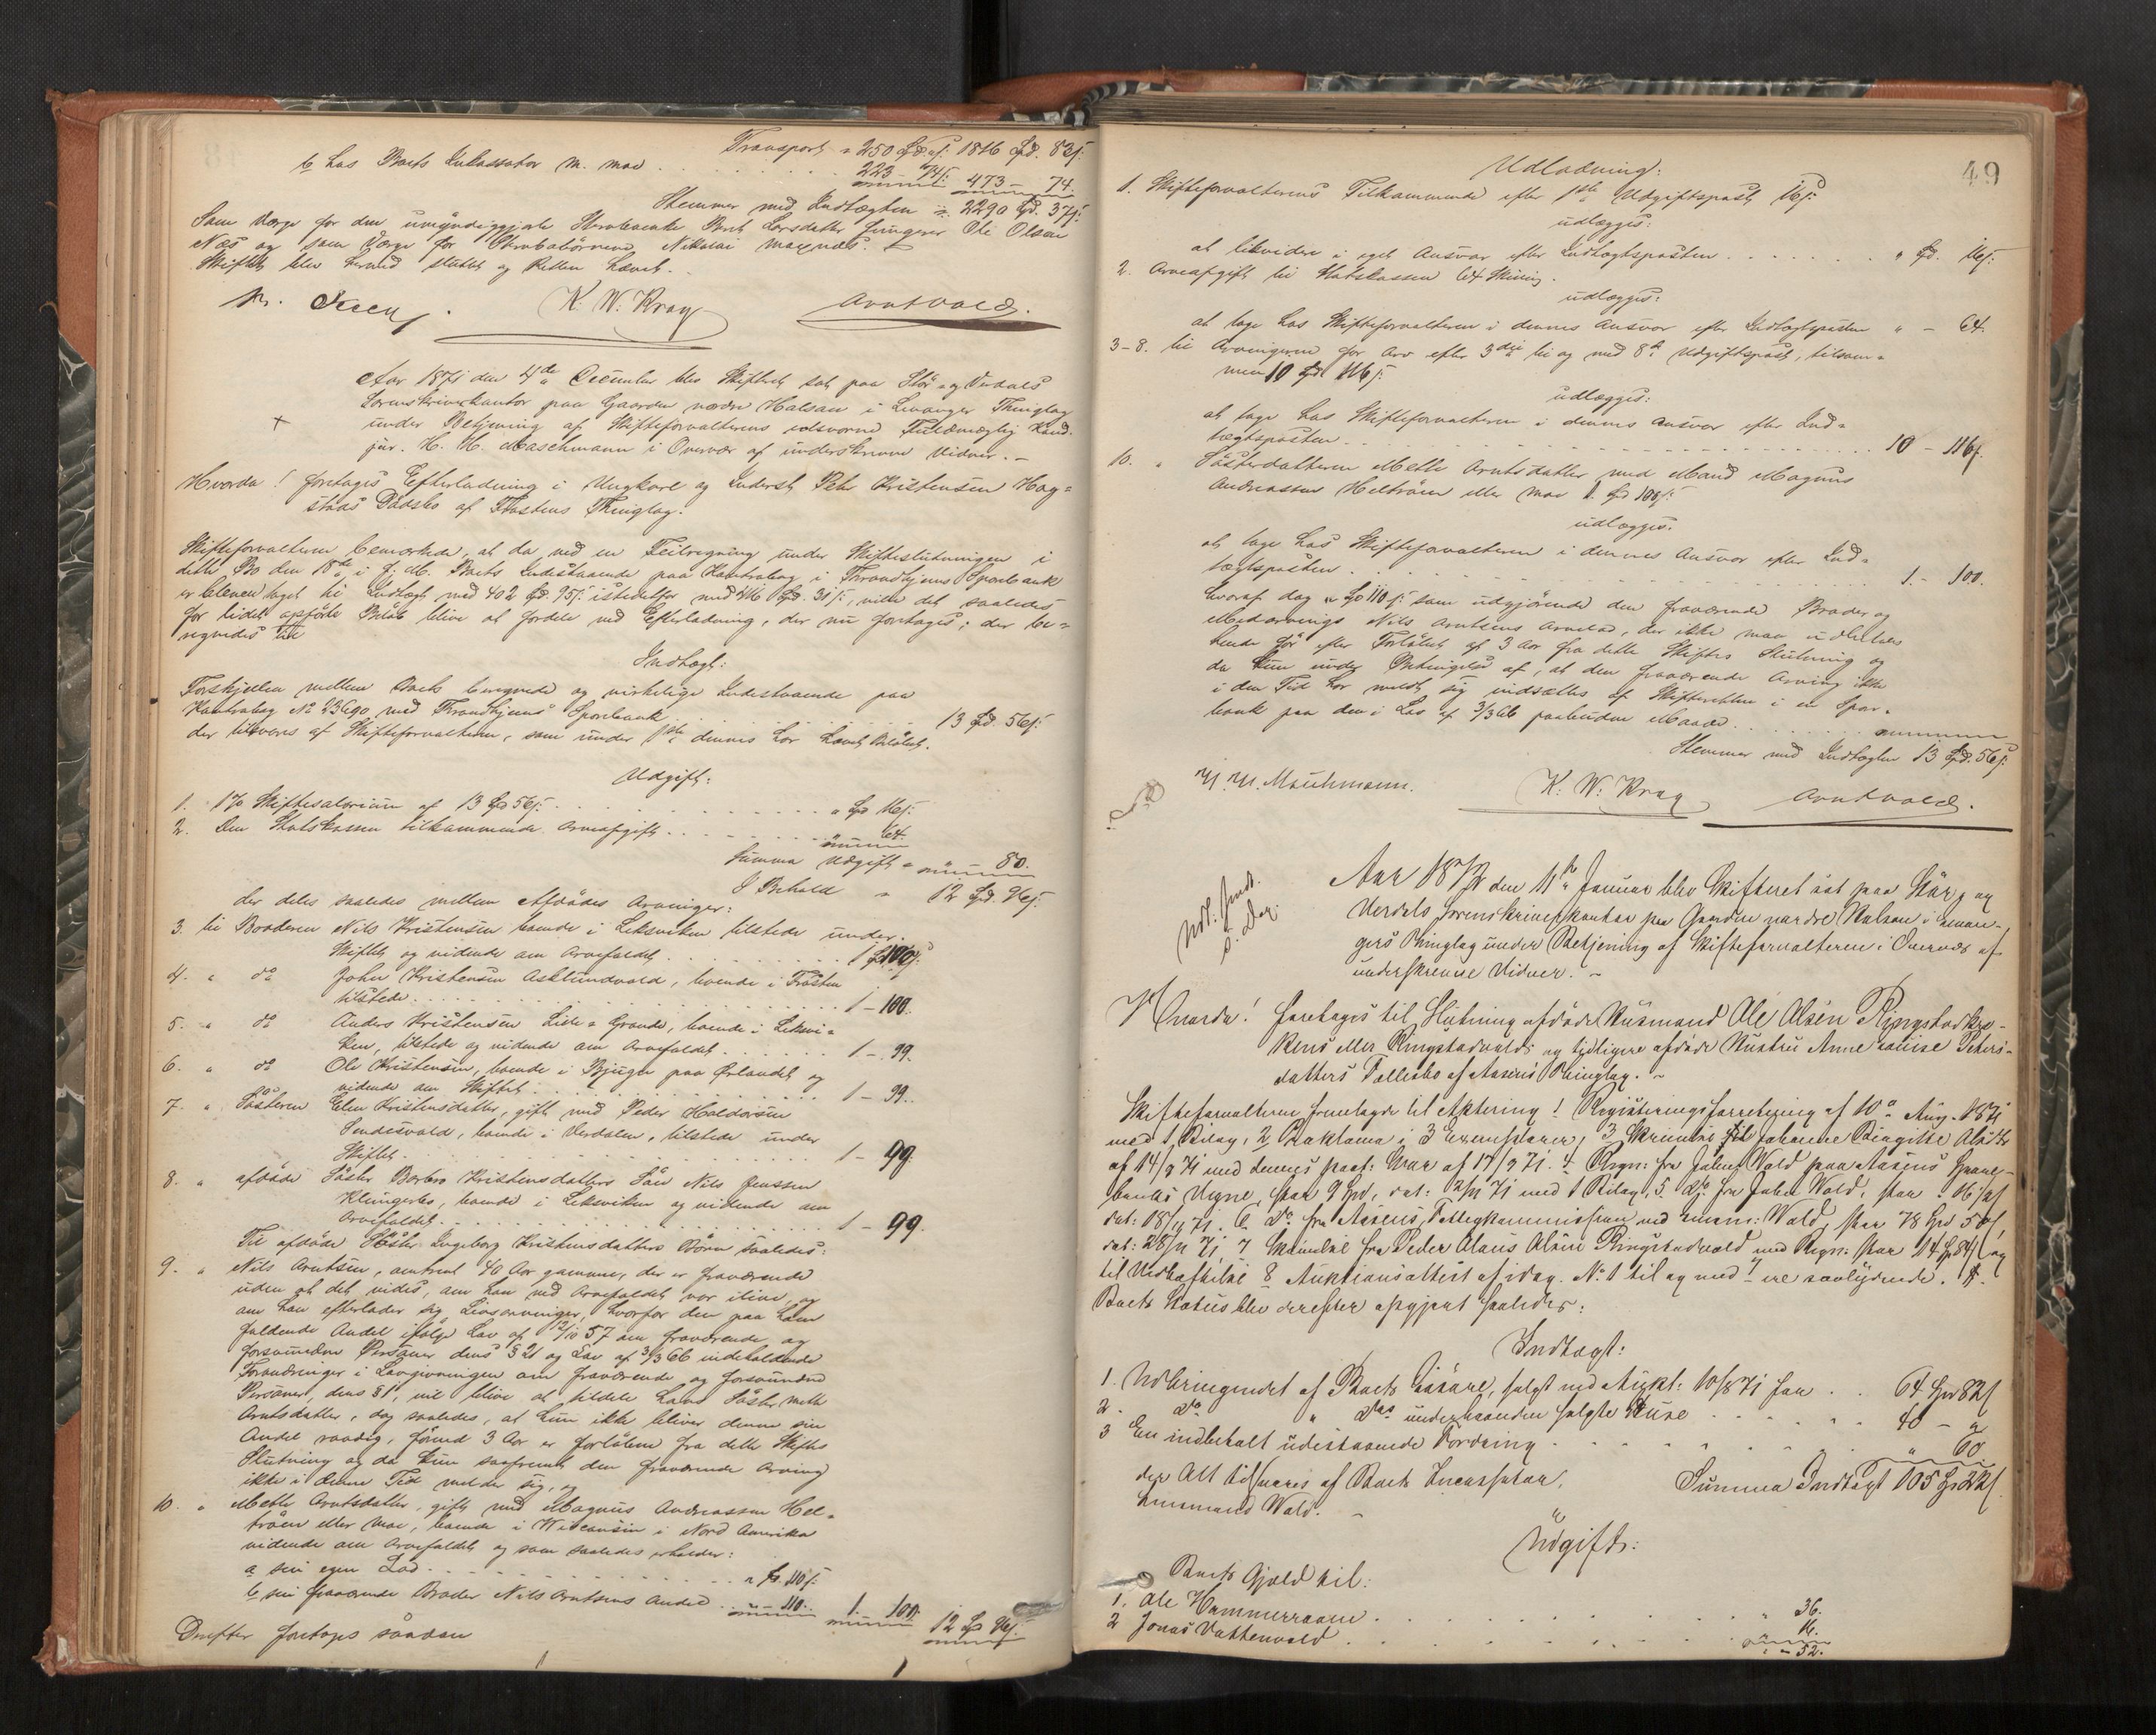 Transport " 250 Spd. ẞ. 1816 Spd. 83ẞ.
b hos Boets Inkassator m. mod . . . 223 - 74ẞ. 473 - 74.
Stemmer med Indtægten = 2290 Spd. 37ẞ.
Som Værge for den umyndiggjorte Stervboenke Berit Larsdatter fungerer Ole Olsen
Næs og som Værge for Stervbobørnene Nikolai
Skiftet blev hermed sluttet og Retten hævet.
K. W. Krag Arnt Vold.
Aar 1871 den 4de December blev Skifteret sat paa Stör- og Værdals
Sorenskriverkontor paa Gaarden nordre Halsan i Levanger Thinglag
under Betjening af Skifteforvalterens edsvorne Fuldmægtig Kand.
jur. H. H. Maschmann i Overvær af underskrevne Vidner. -
Hvorda! foretoges Efterlodning i Ungkarl og Inderst Peter Kristensen Hog-
stads Dødsbo af Frostens Thinglag.
Skifteforvalteren bemærkede, at da ved en Feilregning under Skifteslutningen i
dette Bo den 18de i f. M. Boets Indestaaende paa Kontrabog i Throndhjems Sparebank
er bleven taget til Indtægt med 402 Spd. 95ẞ. istedetfor med 416 Spd. 31ẞ., vilde det saaledes
for lidet opførte Beløb blive at fordele ved Efterlodning, der nu foretoges; der be-
regnedes til
Indtægt:
Forskjellen mellem Boets beregnede og virkelige Indestaaende paa
Kontrabog No 23690 med Throndhjems Sparebank . . . 13 Spd. 56ẞ.
der tilsvares af Skifteforvalteren, som under 1ste dennes har hævet Beløbet.
Udgift:
1. 1% Skiftesalarium af 13 Spd 56ẞ. . . . " Spd 16ẞ.
2. Den Statskassen tilkommende Arveafgift . . . 64.
Summa Udgift = 80.
I Behold " 12 Spd. 96ẞ.
der deles saaledes mellem Afdødes Arvinger:
3. til Broderen Nils Kristensen boende i Leksviken tilstede under
Skiftet og vidende om Arvefaldet . . . 1 Spd 100ẞ.
4. " do John Kristensen Asklundvold, boende i Frosten
tilstede . . . 1 - 100.
5. " do Anders Kristensen Lille-Grande, boende i Leksvi-
ken, tilstede og vidende om Arvefaldet . . . 1 - 99.
6. " do Ole Kristensen, boende i Bjugn paa Ørlandet og
vidende om Skiftet . . . 1 - 99.
7. " Søsteren Elen Kristensdatter, gift med Peder Haldorsen
Sendesvald, boende i Værdalen, tilstede under
Skiftet . . . 1 - 99.
8. " afdøde Søster Barbro Kristensdatters Søn Nils Jenssen
Klingerbo, boende i Leksviken og vidende om
Arvefaldet . . . 1 - 99.
Til afdøde Søster Ingeborg Kristensdatters Børn saaledes:
9. " Nils Arntsen, omtrent 40 Aar gammel, der er fraværende
uden at det vides, om han ved Arvefaldet var ilive, og
om han efterlader sig Livsarvinger, hvorfor den paa ham
faldende Andel ifølge Lov af 12/10 57 om fraværende og
forsvundne Personer dens § 21 og Lov af 3/3 66 indeholdende
Forandringer i Lovgivningen om fraværende og forsvundne
Personer, dens § 1, vil blive at tildele hans Søster Mette
Arntsdatter, dog saaledes, at hun ikke bliver denne sin
Andel raadig, førend 3 Aar er forløbne fra dette Skiftes
Slutning og da kun saafremt den fraværende Arving
ikke i denne Tid melder sig, og
10. " Mette Arntsdatter, gift med Magnus Andreassen Hel-
tröen eller Moe, boende i Wisconsin i Nord Amerika
vidende om Arvefaldet og som saaledes erholder:
a sin egen Lod . . . " Spd. 110ẞ.
b sin fraværende Broder Nils Arntsens Andel . . . " - 110. 1 - 100. 12 Spd 96ẞ.
Derefter foretoges saadan
49
Udlodning:
1. Skifteforvalterens Tilkommende efter 1ste Udgiftspost 16ẞ.
udlægges:
at likvidere i eget Ansvar efter Indtægtsposten . . . " Spd. 16ẞ.
2. Arveafgift til Statskassen 64 Skilling.
udlægges:
at tage hos Skifteforvalteren i dennes Ansvar efter Indtægtsposten " - 64.
3-8. til Arvingerne for Arv efter 3die til og med 8de Udgiftspost, tilsam-
men 10 Spd 116ẞ.
udlægges:
at tage hos Skifteforvalteren i dennes Ansvar efter Ind-
tægtsposten . . . 10 - 116ẞ.
10. " Søsterdatteren Mette Arntsdatter med Mand Magnus
Andreassen Heltröen eller Moe 1 Spd 100ẞ.
udlægges.
at tage hos Skifteforvalteren i dennes Ansvar efter Ind-
tægtsposten . . . 1 - 100.
hvoraf dog " Spd 110ẞ. som udgjørende den fraværende Broder og
Medarvings Nils Arntsens Arvelod, der ikke maa udbetales
hende før efter Forløbet af 3 Aar fra dette Skiftes Slutning og
da kun under Betingelse af, at den fraværende Arving ikke
i den Tid har meldt sig indsættes af Skifteretten i en Spar-
bank paa den i Lov af 3/3 66 paabudne Maade.
Stemmer med Indtægten 13 Spd. 56ẞ.
H. H. Maschmann. K. W. Krag Arnt Vold.
Aar 1872 den 11te Januar blev Skifteret sat paa Stør- og
Værdals Sorenskriverkontor paa Gaarden nordre Halsan i Levan-
gers Thinglag under Betjening af Skifteforvalteren i Overvær af
underskrevne Vidner. -
Hvorda! foretoges til Slutning afdøde Husmand Ole Olsen Ringstadkro-
kens eller Ringstadvalds og tidligere afdøde Hustru Anne Louise Peters-
datters Fællesbo af Aasens Thinglag. -
Skifteforvalteren fremlagde til Aktering! Registreringsforretning af 10de Aug. 1871
med 1 Bilag, 2 Proklama i 3 Exemplarer, 3 Skrivelse til Johanne Birgitte Olsdtr
af 14/9 71 med dennes paaf. Svar af 17/9 71. 4 Regn: fra Johan Wold paa Aasens Spare-
banks Vegne, stor 9 Spd, dat: 2/11 71 med 1 Bilag, 5. do fra Johan Wold, stor
dat: 18/11 71. 6 do fra Aasens Fattigkommission ved Lensm: Wold, stor 78 Spd 50ẞ,
dat: 28/11 71, 7 Skrivelse fra Peder Olaus Olsen Ringstadvald med Regn: stor 14 Spd 84ẞ og
til Vedhæftelse 8 Auktionsattest af idag. No 1 til og med 7 ere saalydende.
Boets Status blev derefter opgjort saaledes:
Indtægt:
1. Udbringendet af Boets Løsøre, solgt ved Aukt: 10/8 71 for . . 64 Spd 82ẞ
2. do " dets underhaanden solgte Huse . . . 40 - "
3 En indbetalt udestaaende Fordring . . . " 60
der Alt tilsvares af Boets Incassator, Summa Indtægt 105 Spd 22ẞ
Lensmand Wold. -
Udgift:
Boets Gjæld til:
1. Ole Hammerraaen . . . " 36.
2 Jonas Vattenvold . . . 16.
" - 52.